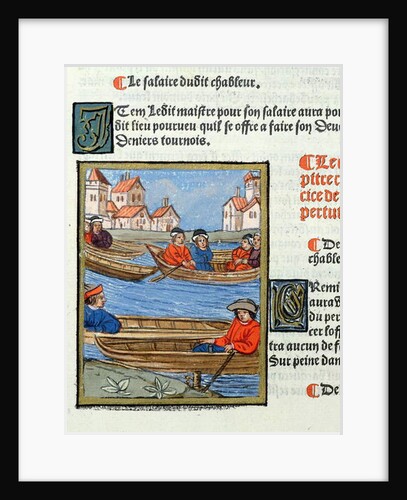 Le salaire dudit chableur.
ITem Ledit maistre pour son salaire aura po
dit lieu pourueu quil se offre a faire son Deu
Deniers tournois.
Le
pitre
cice de
pertu
De
chable
CRemi
aura
du per
cer lof
tra aucun de f
Sur peine dan
De